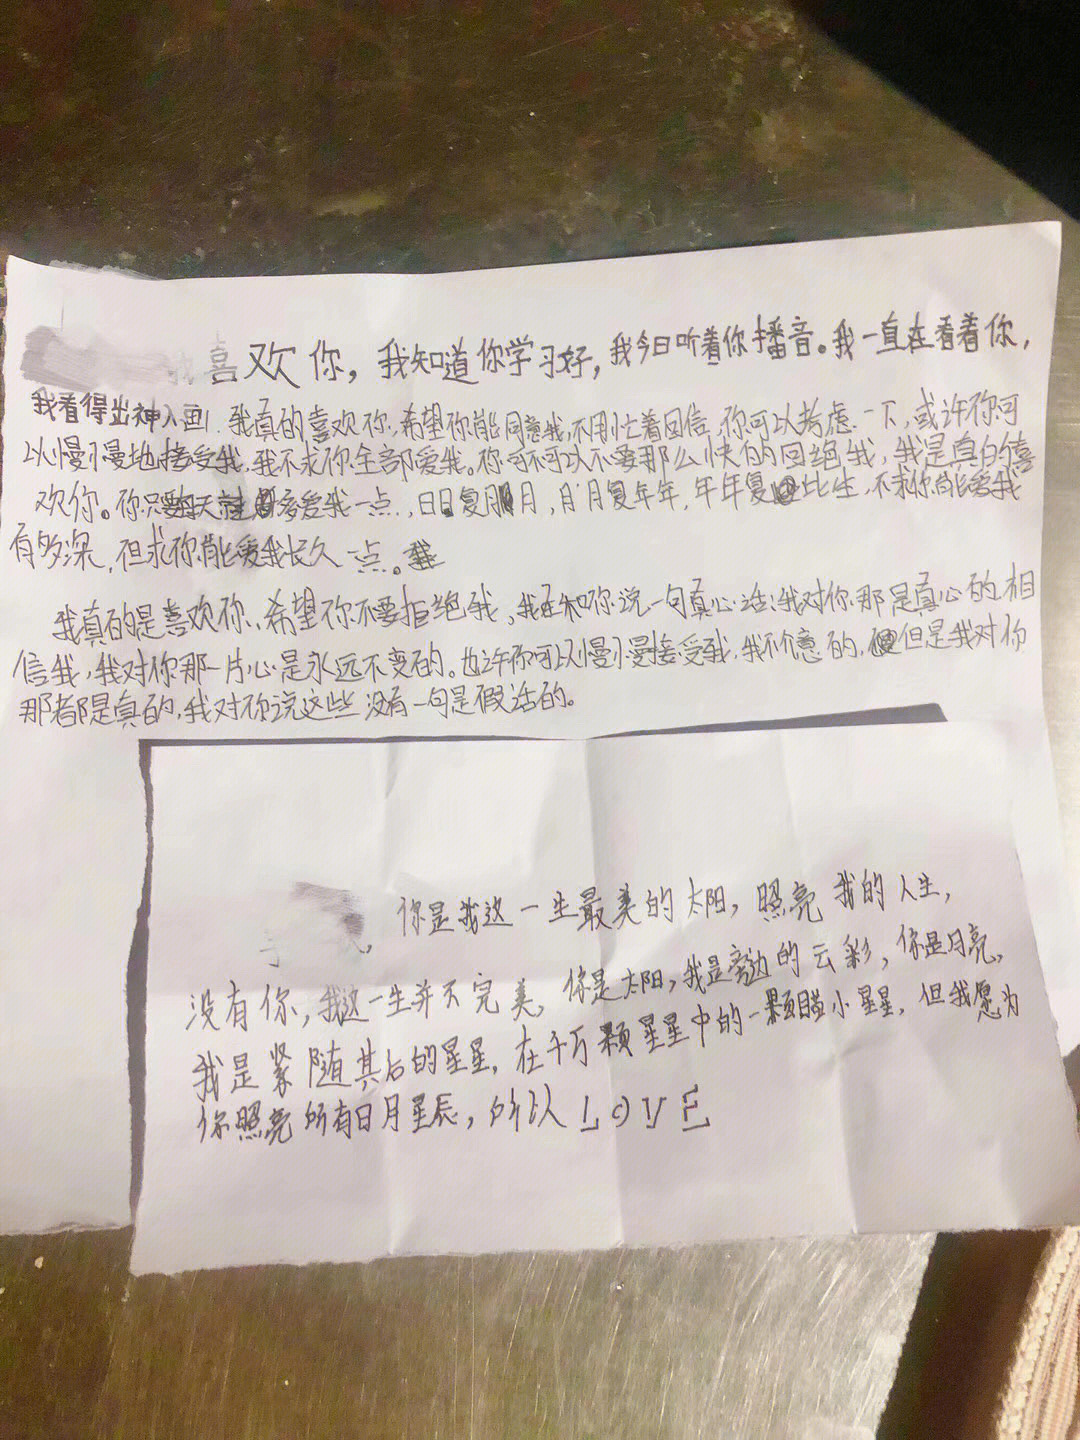 我喜欢你，我知道你学习好，我今日听着你播音。我一直在看着你，
我看得出神入画，我真的喜欢你，希望你能同意我，不用忙着回信，你可以考虑一下，或许你可
以慢慢地接受我，我不求你全部爱我。你可不可以不要那么快的回绝我，我是真的喜
欢你。你只要每天多爱我一点，日日复月月，月月复年年，年年复比生，不求你能爱我
有多深，但求你能爱我长久一点。
我真的是喜欢你，希望你不要拒绝我，我在和你说一句真心话：我对你那是真心的相
信我，我对你那一片心是永远不变的。也许你可以慢慢接受我，我不介意的，但是我对你
那都是真的，我对你说这些没有一句是假话的。
你是我这一生最美的太阳，照亮我的人生，
没有你，我这一生并不完美，你是太阳，我是旁边的云彩，你是月亮，
我是紧随其后的星星，在千万颗星星中的一颗小星星，但我愿为
你照亮所有日月星辰，所以LOVE